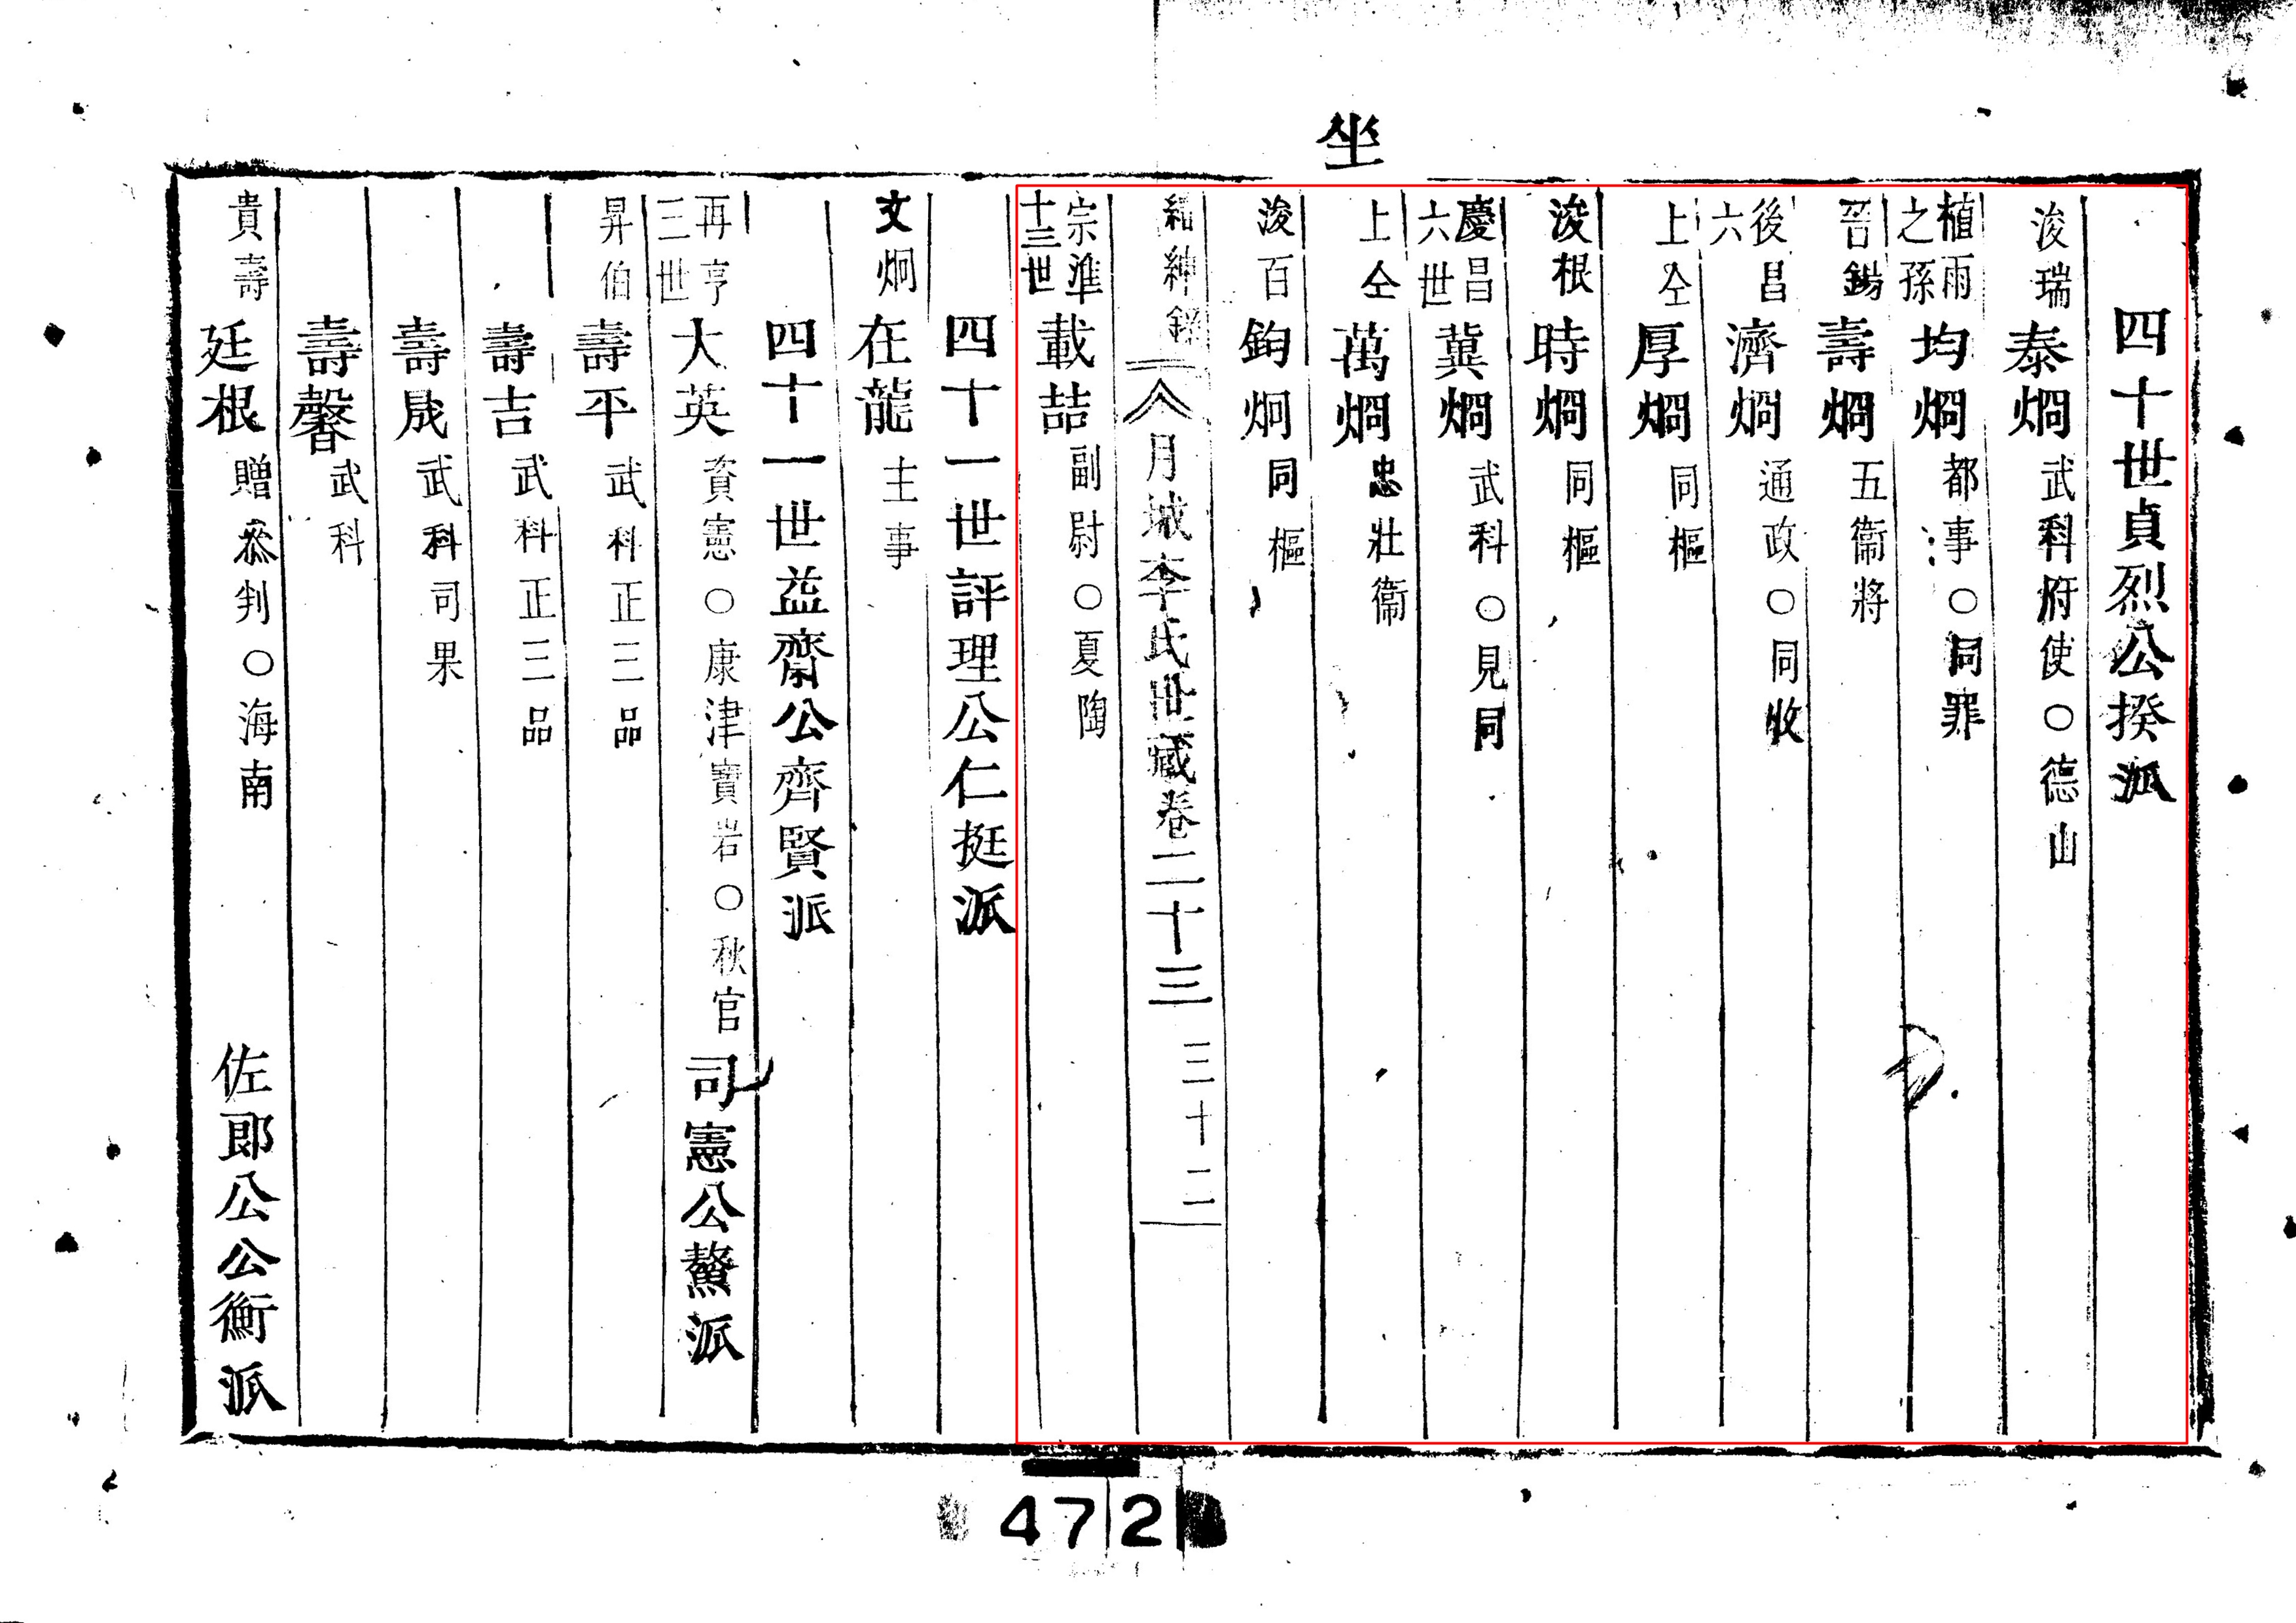 坐
四十世貞烈公揆派
浚瑞 泰烱 武科府使○德山
植雨之孫 均烱 都事○同罪
晉錫 壽烱 五衛將
後昌六 濟烱 通政○同收
上仝 厚烱 同樞
浚根 時烱 同樞
慶昌六世 冀烱 武科○見同
上仝 萬烱 忠壯衞
浚百 鈞炯 同樞
縉紳錄 月城李氏世藏卷二十三 三十二
宗準十三世 載喆 副尉○夏陶
四十一世評理公仁挺派
文炯 在龍 主事
四十一世益齋公齊賢派
再亨三世 大英 資憲○康津寶岩○秋官 司憲公鰲派
昇伯 壽平 武科正三品
壽吉 武科正三品
壽晟 武科司果
壽馨 武科
貴壽 廷根 贈叅判○海南 佐郎公公衡派
472